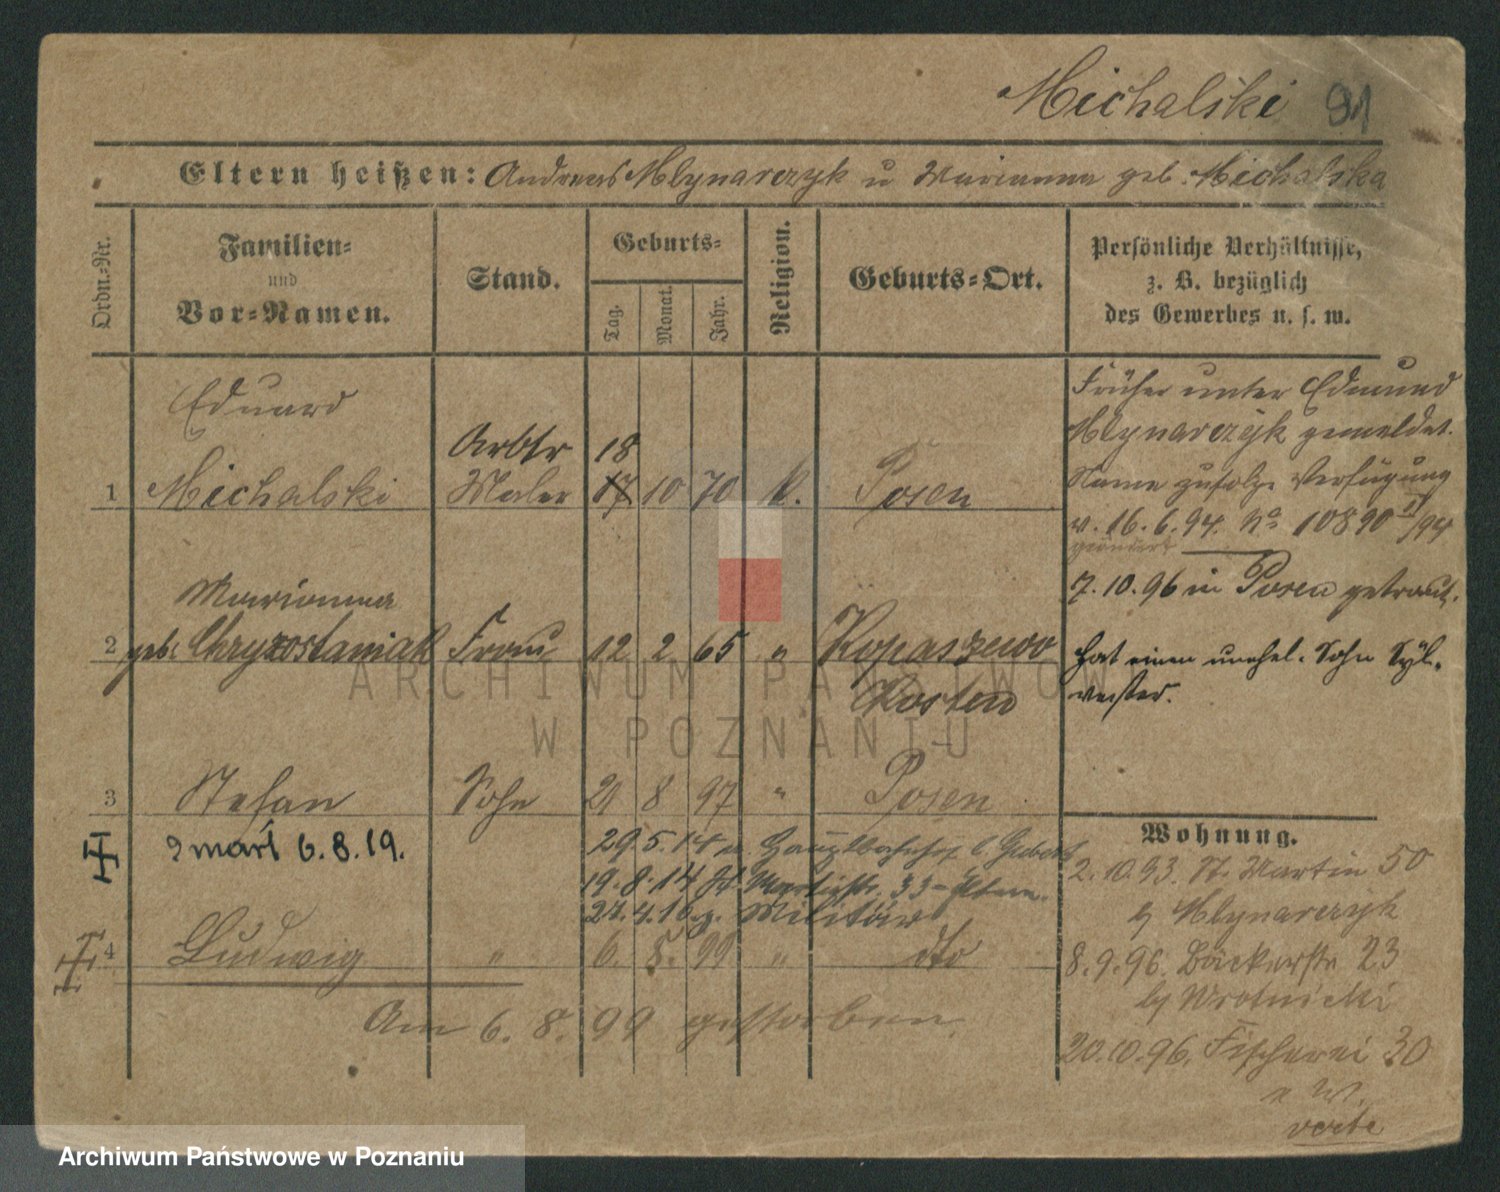 Michalski 91
Eltern heißen: Andreas Mlynarczyk u Marianna geb. Michalska
Ordn.-Nr.
Familien- und Vor-Namen.
Stand.
Geburts-
Tag. Monat. Jahr.
Religion.
Geburts-Ort.
Persönliche Verhältnisse,
z. B. bezüglich
des Gewerbes u. s. w.
Eduard
Arbtr 18
1 Michalski Maler 17 10 70 k. Posen
Früher unter Edmund
Mlynarczyk gemeldet.
Name zufolge Verfügung
v. 16. 6. 94. No 10890 /94
geändert
7. 10. 96 in Posen getraut.
Marianna
2 geb. Chryzostaniak Frau 12 2 65 " Kopaszewo
Kosten
hat einen unehel. Sohn Syl-
vester.
3 Stefan Sohn 21 8 97 " Posen
zmarł 6.8.19.
29. 5. 14 Hauptbahnhof
19. 8. 14 33
27. 4. 16 z. Militär
4 Ludwig " 6. 8. 99 " dto
Am 6. 8. 99 gestorben
Wohnung.
2. 10. 93. St. Martin 50
b/ Mlynarczyk
8. 9. 96. Bäckerstr 23
b/ Wrotnicki
20. 10. 96. Fischerei 30
e W.
verte
ARCHIWUM PAŃSTWOWE
W POZNANIU
Archiwum Państwowe w Poznaniu